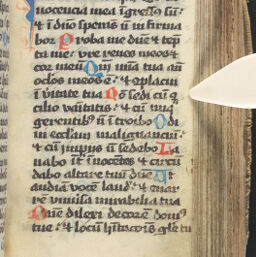 nocencia mea ingressus sū:
⁊ ī dn̄o sperās nō infirma
bor Proba me dn̄e ⁊ temp
ta me: vre renes meos ⁊
cor meū Qm̄ mīa tua an̄
oclos meos ē: ⁊ ꝯplacui
ī vitate tua Nō sedi cū ꝯ
cilio vaītatis: ⁊ cū iniq̄
gerentib⁹ nō ītroibo Odiui
ecclām malignanciū:
⁊ cū impiis nō sedebo La
uabo īt īnocētes ⁊ circū
dabo altare tuū dn̄e Vt
audiā vocē laud̄: ⁊ enar
rē vniuīsa mirabilia tua
Dn̄e dilexi decorē dom⁹
tue: ⁊ locū hītacōis gl̄e tu